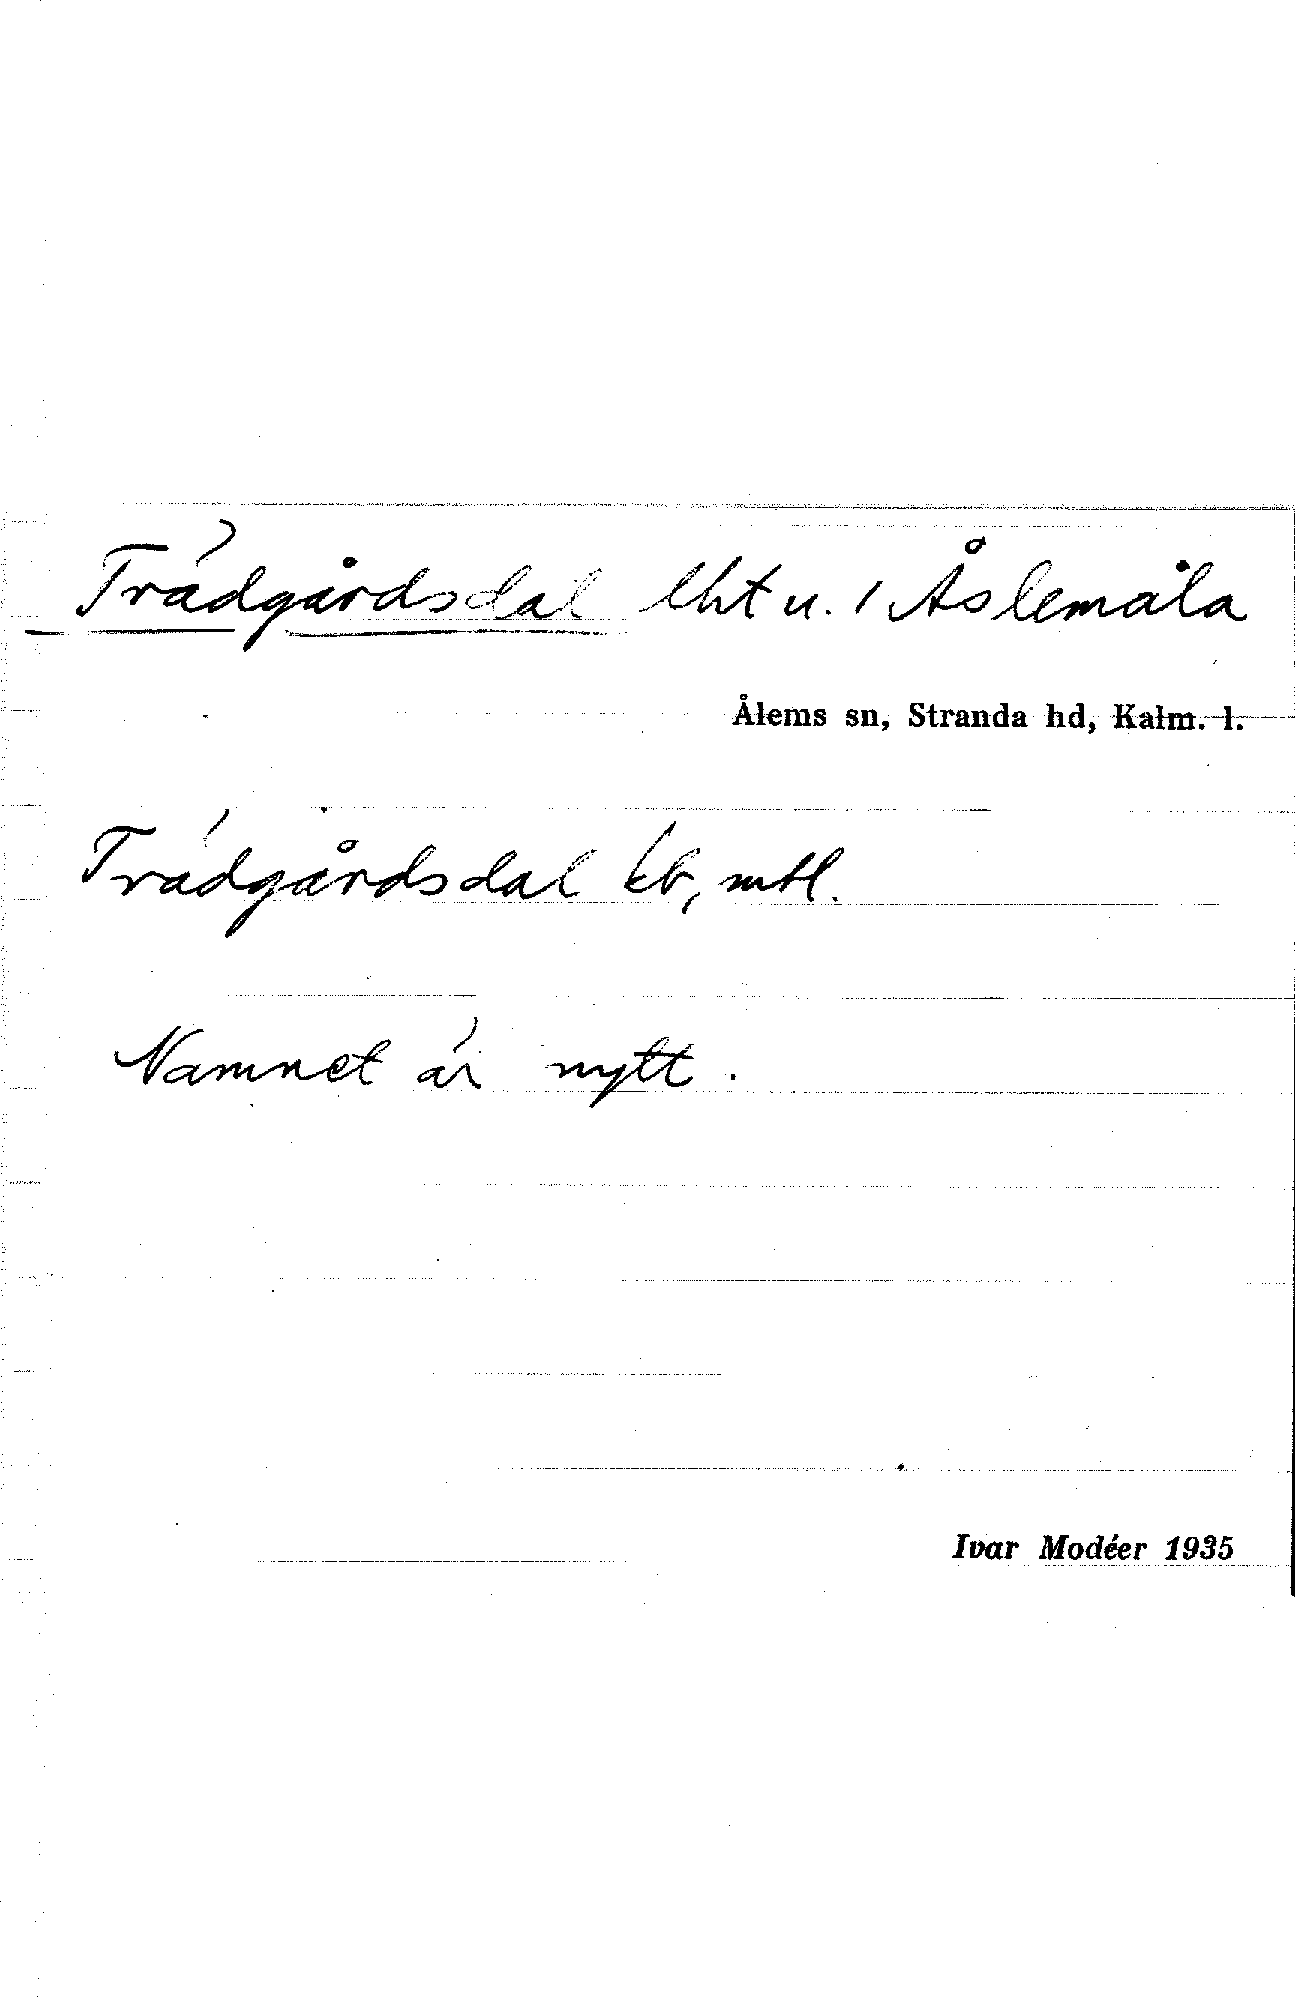 Trädgårdsdal lht u. 1 Åslemåla
Ålems sn, Stranda hd, Kalm. l.
Trädgårdsdal kb, mtl.
Namnet är nytt.
Ivar Modéer 1935